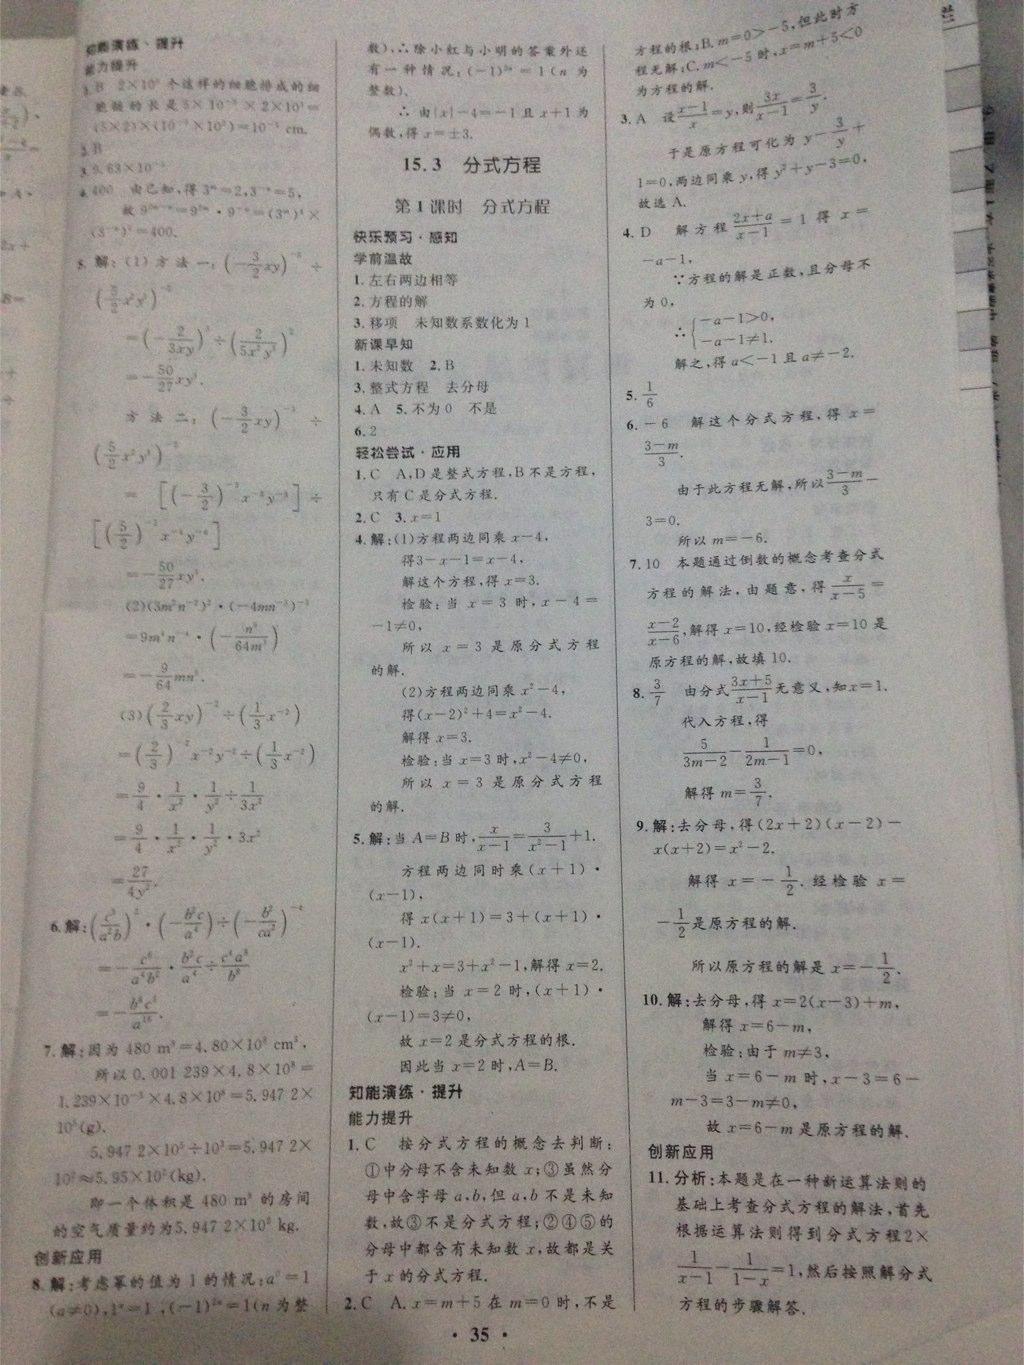 知能演练·提升
能力提升
1. B 2×10³ 个这样的细胞排成的细
(5×2)×(10⁻⁵×10³)=10⁻¹ cm.
2. B
4. 400 由已知,得 3ᵐ=2,3⁻ⁿ=5,
(3⁻ⁿ)²=400.
5. 解:(1)方法一:(−3/2xy)⁻³÷
=(−2/3xy)³÷(2/5x²y³)²
=−50/27xy³.
方法二:(−3/2xy)⁻³÷
=−50/27xy³.
(2)(3m²n⁻²)²·(−4mn⁻³)⁻³
=−9/64mn⁵.
(3)(2/3xy)⁻²÷(1/3x⁻²)
=(2/3)⁻²x⁻²y⁻²÷(1/3x⁻²)
=9/4·1/x²·1/y²÷1/3x²
=9/4·1/x²·1/y²·3x²
=27/4y².
7. 解:因为 480 m³=4.80×10⁸ cm³,
所以 0.001 239×4.8×10⁸=
1.239×10⁻³×4.8×10⁸=5.947 2×
10⁵(g).
5.947 2×10⁵÷10³=5.947 2×
10²≈5.95×10²(kg).
即一个体积是 480 m³ 的房间
的空气质量约为5.947 2×10² kg.
创新应用
8. 解:考虑幂的值为 1 的情况:a⁰=1
(a≠0),1ⁿ=1,(−1)²ⁿ=1(n 为整
数),∴除小红与小明的答案外还
有一种情况:(−1)²ⁿ=1(n 为
整数).
∴ 由|x|−4=−1 且 x+1 为
偶数,得 x=±3.
15.3 分式方程
第 1 课时 分式方程
快乐预习·感知
学前温故
1. 左右两边相等
2. 方程的解
3. 移项 未知数系数化为 1
新课早知
1. 未知数 2. B
3. 整式方程 去分母
4. A 5. 不为 0 不是
6. 2
轻松尝试·应用
1. C A,D 是整式方程,B 不是方程,
只有 C 是分式方程.
2. C 3. x=1
4. 解:(1)方程两边同乘 x−4,
得3−x−1=x−4,
解这个方程,得 x=3.
检验:当 x=3 时,x−4=
−1≠0,
所以 x=3 是原分式方程
的解.
(2)方程两边同乘 x²−4,
得(x−2)²+4=x²−4.
解得 x=3.
检验:当 x=3 时,x²−4≠0,
所以 x=3 是原分式方程
的解.
5. 解:当 A=B 时,x/(x−1)=3/(x²−1)+1.
方程两边同时乘(x+1)·
(x−1),
得 x(x+1)=3+(x+1)·
(x−1).
x²+x=3+x²−1,解得 x=2.
检验:当 x=2 时,(x+1)·
(x−1)=3≠0,
故 x=2 是分式方程的根.
因此当 x=2 时,A=B.
知能演练·提升
能力提升
1. C 按分式方程的概念去判断:
①中分母不含未知数 x;③虽然分
母中含字母 a,b,但 a,b 不是未知
数,故③不是分式方程;②④⑤的
分母中都含有未知数 x,故都是关
于 x 的分式方程.
2. C A. x=m+5 在 m=0 时,不是
方程的根;B. m=0>−5,但此时方
程无解;C. m<−5 时,x=m+5<0
为方程的解.
3. A 设(x−1)/x=y,则3x/(x−1)=3/y.
于是原方程可化为 y−3/y+
1=0,两边同乘 y,得 y²+y−3=0,
故选 A.
4. D 解方程(2x+a)/(x−1)=1 得 x=
−a−1,
∵方程的解是正数,且分母不
为 0,
∴{−a−1>0,
−a−1≠1.
解之,得 a<−1 且 a≠−2.
5. 1/6
6. −6 解这个分式方程,得 x=
(3−m)/3.
由于此方程无解,所以(3−m)/3−
3=0.
所以 m=−6.
7. 10 本题通过倒数的概念考查分式
方程的解法,由题意,得x/(x−5)=
(x−2)/(x−6),解得 x=10,经检验 x=10 是
原方程的解,故填 10.
8. 3/7 由分式(3x+5)/(x−1)无意义,知x=1.
代入方程,得
5/(3m−2)−1/(2m−1)=0,
解得 m=3/7.
9. 解:去分母,得(2x+2)(x−2)−
x(x+2)=x²−2.
解得 x=−1/2. 经检验 x=
−1/2是原方程的解.
所以原方程的解是 x=−1/2.
10. 解:去分母,得 x=2(x−3)+m,
解得 x=6−m,
检验:由于 m≠3,
当 x=6−m 时,x−3=6−
m−3=3−m≠0,
故 x=6−m 是原方程的解.
创新应用
11. 分析:本题是在一种新运算法则的
基础上考查分式方程的解法,首先
根据运算法则得到分式方程2×
1/(x−1)−1/(1−x)=1,然后按照解分式
方程的步骤解答.
· 35 ·